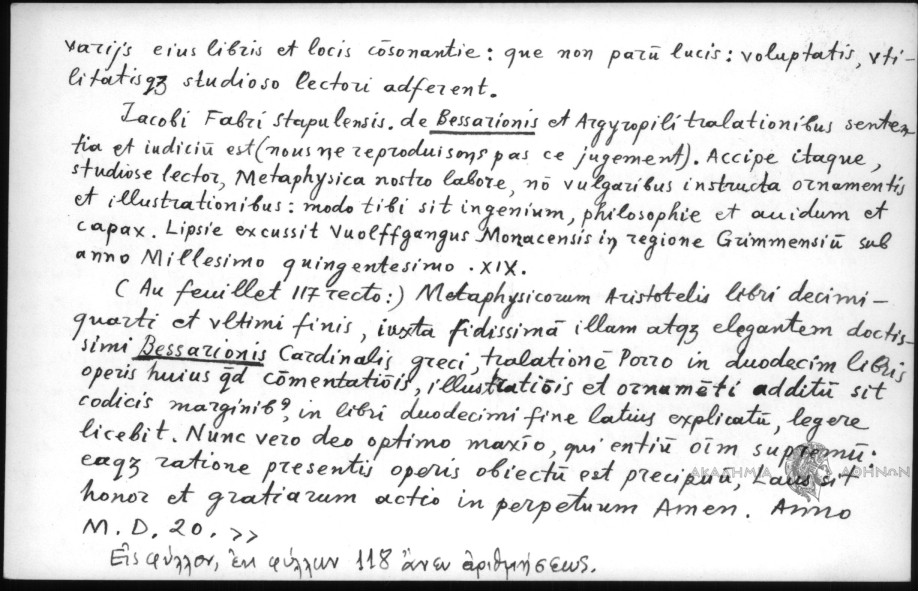 varijs eius libris et locis cōsonantie: que non parū lucis: voluptatis, vti-
litatisqȝ studioso lectori adferent.
Iacobi Fabri Stapulensis. de Bessarionis et Argyropili tralationibus senten-
tia et iudiciū est (nous ne reproduisons pas ce jugement). Accipe itaque,
studiose lector, Metaphysica nostro labore, nō vulgaribus instructa ornamentis
et illustrationibus: modo tibi sit ingenium, philosophie et auidum et
capax. Lipsie excussit Vuolffgangus Monacensis in regione Grimmensiū sub
anno Millesimo quingentesimo .XIX.
(Au feuillet 117 recto:) Metaphysicorum Aristotelis libri decimi-
quarti et vltimi finis, iuxta fidissimā illam atqȝ elegantem doctis-
simi Bessarionis Cardinalis greci, tralationē Porro in duodecim libris
operis huius q̄d cōmentatiōis, illustratiōis et ornamēti additū sit
codicis marginibꝰ, in libri duodecimi fine latius explicatū, legere
licebit. Nunc vero deo optimo maxīo, qui entiū oīm supremū:
eaqȝ ratione presentis operis obiectū est precipuū, Laus sit
honor et gratiarum actio in perpetuum Amen. Anno
M. D. 20. >>
Εἰς φύλλον, ἐκ φύλλων 118 ἄνευ ἀριθμήσεως.
ΑΚΑΔΗΜΙΑ ΑΘΗΝΩΝ